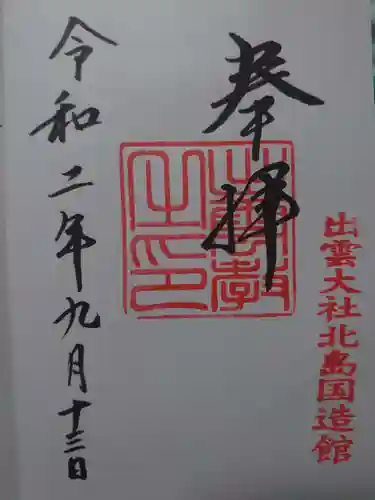 出雲大社北島国造館
奉拝
令和二年九月十三日